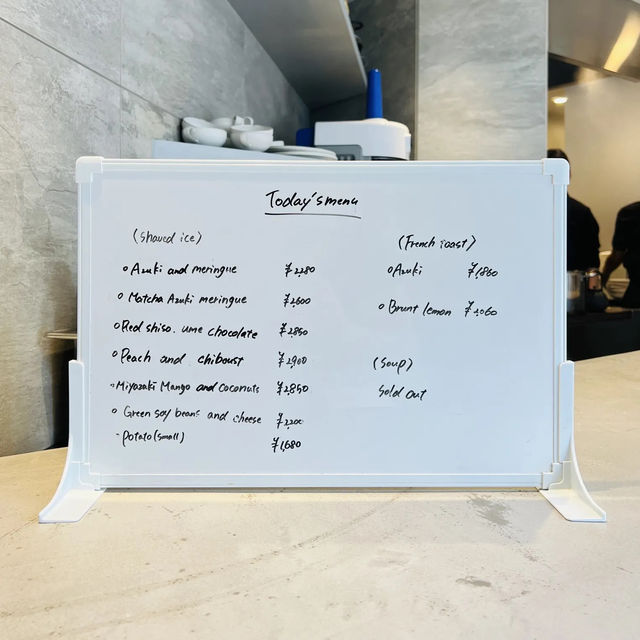 Today's menu
(Shaved ice)
Azuki and meringue ¥2,280
Matcha Azuki meringue ¥2,600
Red shiso. ume chocolate ¥2,850
Peach and chiboust ¥2,900
Miyazaki Mango and coconuts ¥2,850
Green soy beans and cheese ¥2,200
- Potato (small) ¥1,680
(French toast)
Azuki ¥1,860
Brunt lemon
(Soup)
Sold out